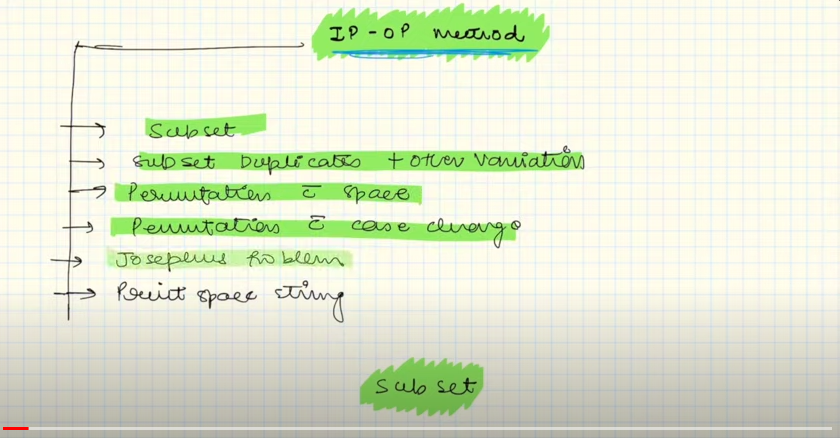 IP-OP method
Subset
Subset Duplicates + other variation
Permutation c̄ space
Permutation c̄ case change
Josephus Problem
Print space string
Subset